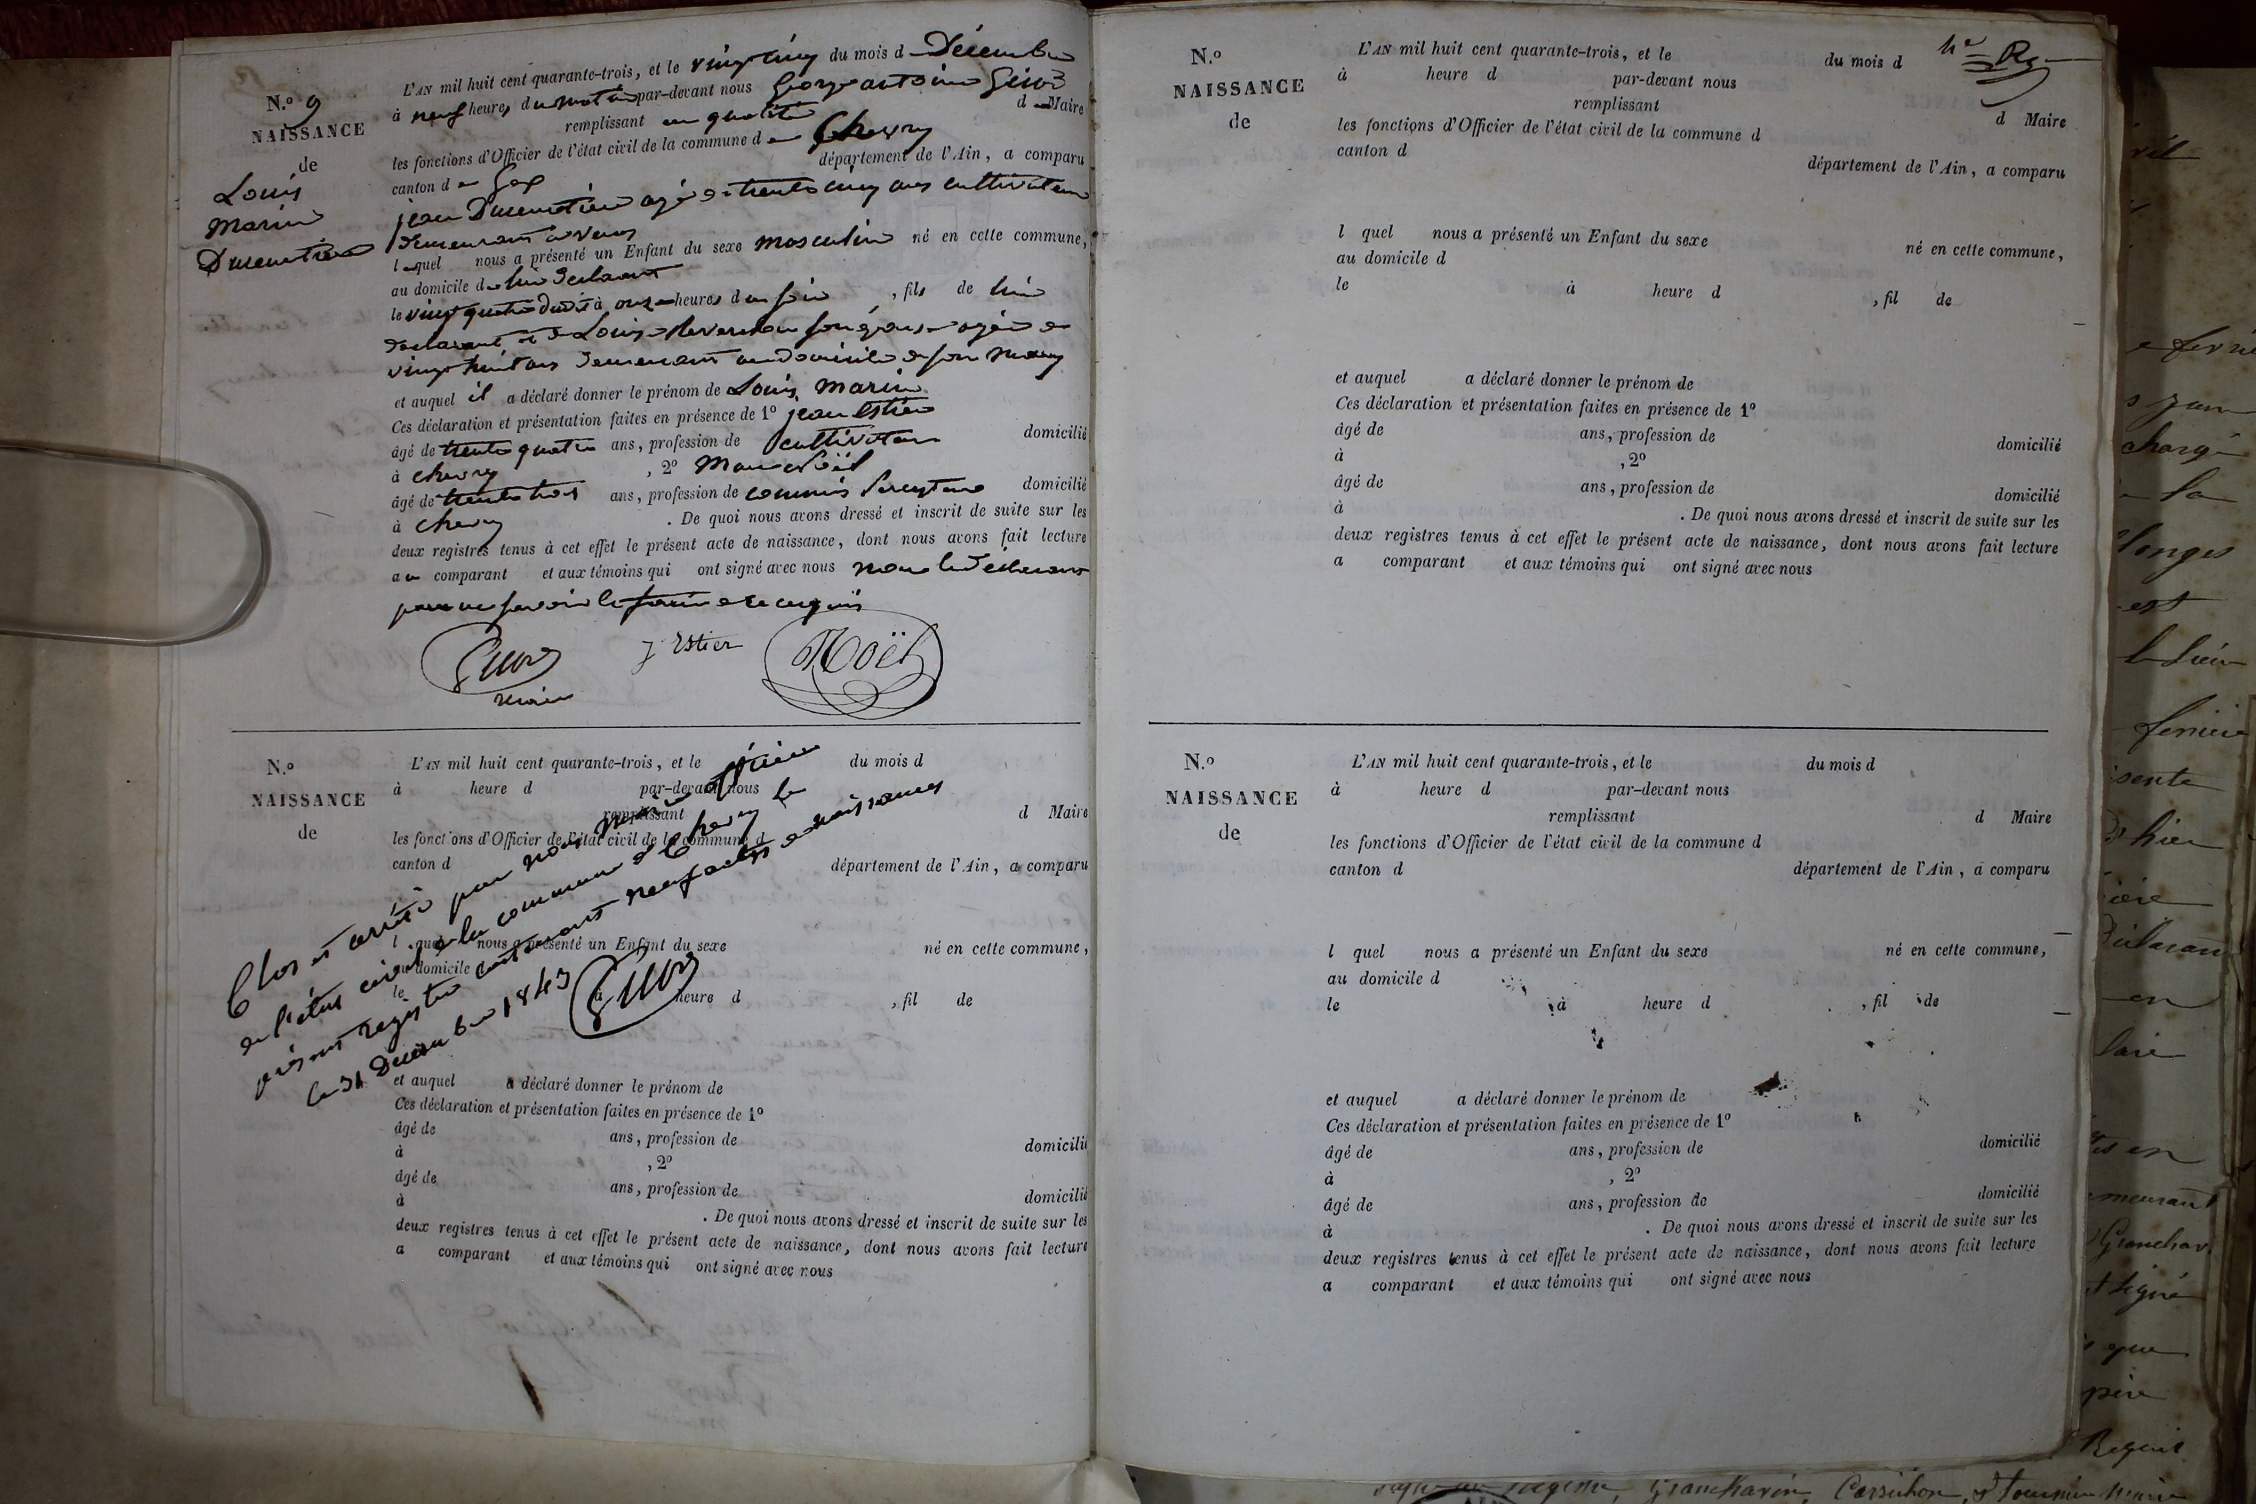 N.º 9
NAISSANCE
de
Louis
Marin
Ducimetière
L'AN mil huit cent quarante-trois, et le vingt cinq du mois d e Décembre
à neuf heures du matin par-devant nous George antoine Girod
remplissant en qualité d e Maire
les fonctions d'Officier de l'état civil de la commune d e Chevry
canton d e Gex département de l'Ain, a comparu
jean Ducimetière agé de trente cinq ans cultivateur
demeurant à
lequel nous a présenté un Enfant du sexe masculin né en cette commune,
au domicile de lui déclarant
le vingt quatre dudit à onze heures du soir, fils de lui
déclarant et de Louise son épouse agée de
vingt huit ans demeurant au domicile de son mary
et auquel il a déclaré donner le prénom de Louis Marin
Ces déclaration et présentation faites en présence de 1º jean Estier
âgé de trente quatre ans, profession de cultivateur domicilié
à chevry, 2º Noël
âgé de trente trois ans, profession de commis domicilié
à chevry. De quoi nous avons dressé et inscrit de suite sur les
deux registres tenus à cet effet le présent acte de naissance, dont nous avons fait lecture
au comparant et aux témoins qui ont signé avec nous non le déclarant
pour ne savoir le faire de ce requis
Girod
maire
J Estier
Noël
N.º
NAISSANCE
de
L'AN mil huit cent quarante-trois, et le du mois d
à heure d par-devant nous
remplissant d Maire
les fonctions d'Officier de l'état civil de la commune d
canton d département de l'Ain, a comparu
l quel nous a présenté un Enfant du sexe né en cette commune,
au domicile
le à heure d , fil de
Clos et arrêté par nous maire officier
de l'état civil de la commune de Chevry le
présent registre contenant neuf actes de naissances
le 31 Décembre 1843
Girod
et auquel a déclaré donner le prénom de
Ces déclaration et présentation faites en présence de 1º
âgé de ans, profession de domicilié
à , 2º
âgé de ans, profession de domicilié
à . De quoi nous avons dressé et inscrit de suite sur les
deux registres tenus à cet effet le présent acte de naissance, dont nous avons fait lecture
a comparant et aux témoins qui ont signé avec nous
N.º
NAISSANCE
de
L'AN mil huit cent quarante-trois, et le du mois d
à heure d par-devant nous
remplissant d Maire
les fonctions d'Officier de l'état civil de la commune d
canton d
département de l'Ain, a comparu
l quel nous a présenté un Enfant du sexe né en cette commune,
au domicile d
le à heure d , fil de
et auquel a déclaré donner le prénom de
Ces déclaration et présentation faites en présence de 1º
âgé de ans, profession de domicilié
à , 2º
âgé de ans, profession de domicilié
à . De quoi nous avons dressé et inscrit de suite sur les
deux registres tenus à cet effet le présent acte de naissance, dont nous avons fait lecture
a comparant et aux témoins qui ont signé avec nous
N.º
NAISSANCE
de
L'AN mil huit cent quarante-trois, et le du mois d
à heure d par-devant nous
remplissant d Maire
les fonctions d'Officier de l'état civil de la commune d
canton d département de l'Ain, a comparu
l quel nous a présenté un Enfant du sexe né en cette commune,
au domicile d
le à heure d , fil de
et auquel a déclaré donner le prénom de
Ces déclaration et présentation faites en présence de 1º
âgé de ans, profession de domicilié
à , 2º
âgé de ans, profession de domicilié
à . De quoi nous avons dressé et inscrit de suite sur les
deux registres tenus à cet effet le présent acte de naissance, dont nous avons fait lecture
a comparant et aux témoins qui ont signé avec nous